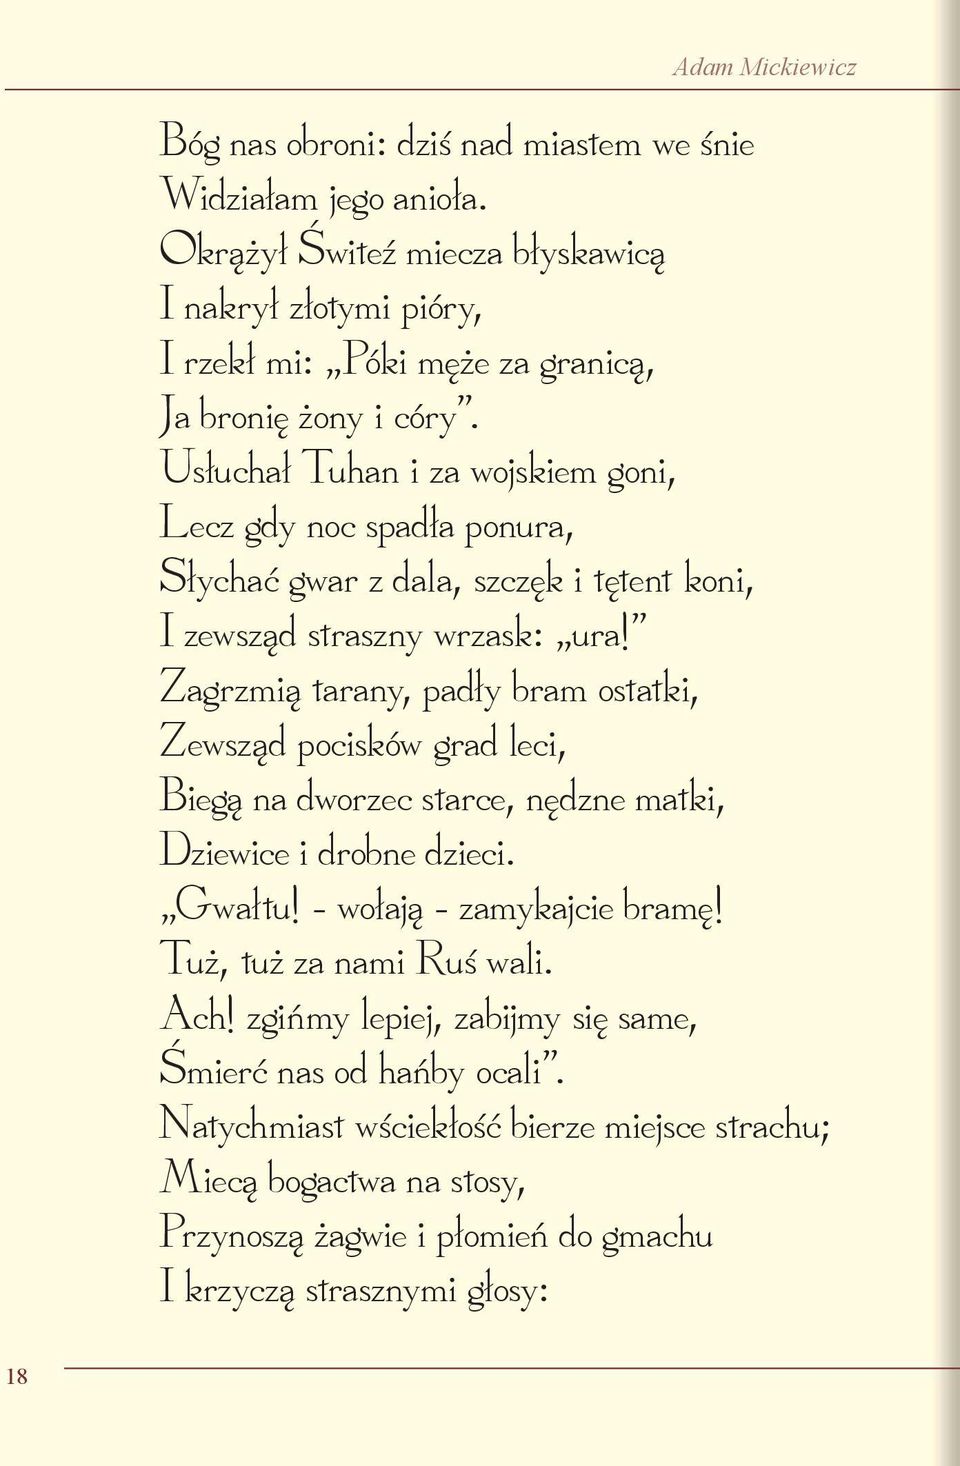 Adam Mickiewicz
Bóg nas obroni: dziś nad miastem we śnie
Widziałam jego anioła.
Okrążył Świteź miecza błyskawicą
I nakrył złotymi pióry,
I rzekł mi: „Póki męże za granicą,
Ja bronię żony i córy”.
Usłuchał Tuhan i za wojskiem goni,
Lecz gdy noc spadła ponura,
Słychać gwar z dala, szczęk i tętent koni,
I zewsząd straszny wrzask: „ura!”
Zagrzmią tarany, padły bram ostatki,
Zewsząd pocisków grad leci,
Biegą na dworzec starce, nędzne matki,
Dziewice i drobne dzieci.
„Gwałtu! - wołają - zamykajcie bramę!
Tuż, tuż za nami Ruś wali.
Ach! zgińmy lepiej, zabijmy się same,
Śmierć nas od hańby ocali”.
Natychmiast wściekłość bierze miejsce strachu;
Miecą bogactwa na stosy,
Przynoszą żagwie i płomień do gmachu
I krzyczą strasznymi głosy:
18